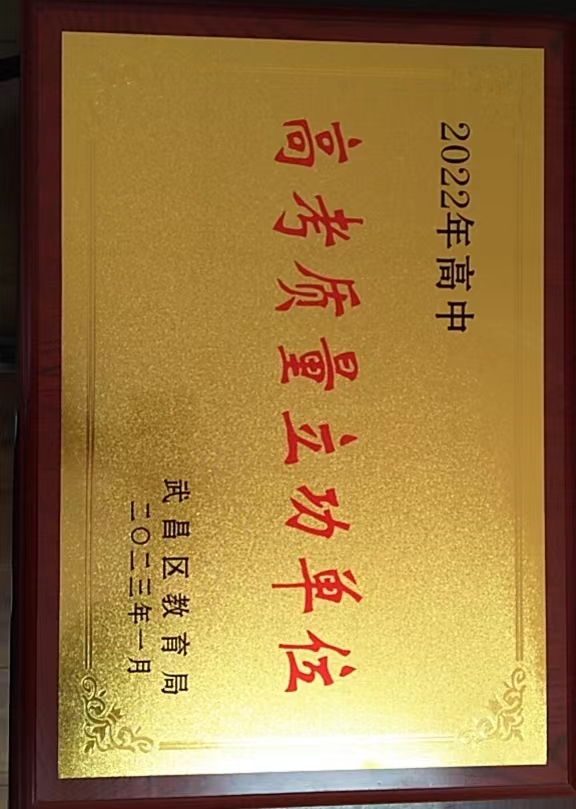 2022年高中
高考质量立功单位
武昌区教育局
二〇二三年一月